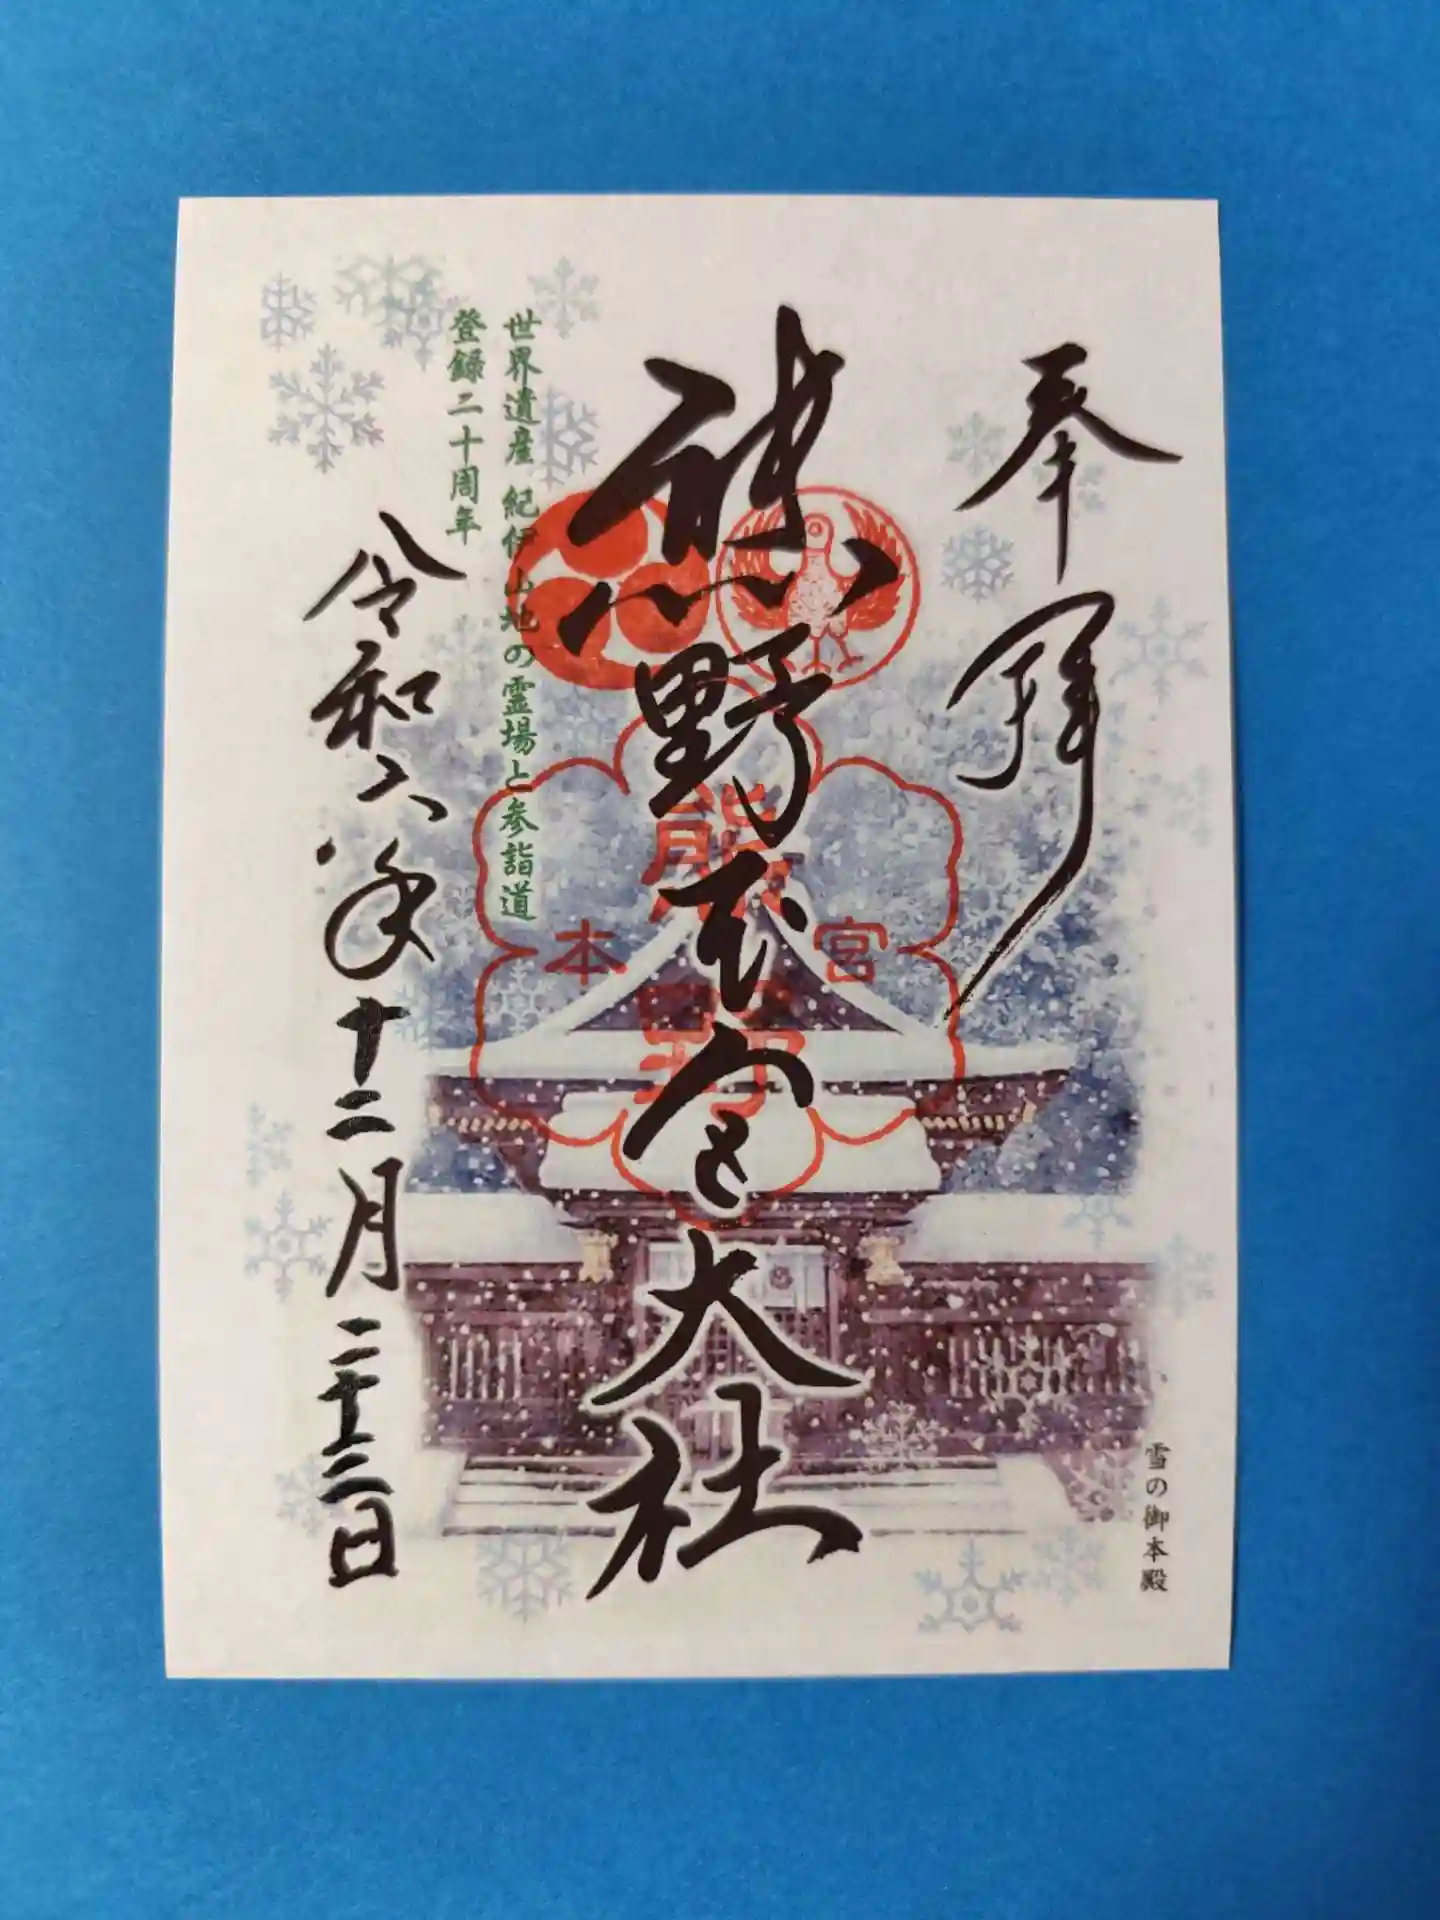 奉拝
熊野本宮大社
世界遺産 紀伊山地の霊場と参詣道
登録二十周年
令和六年十二月二十三日
熊野
本宮
雪の御本殿